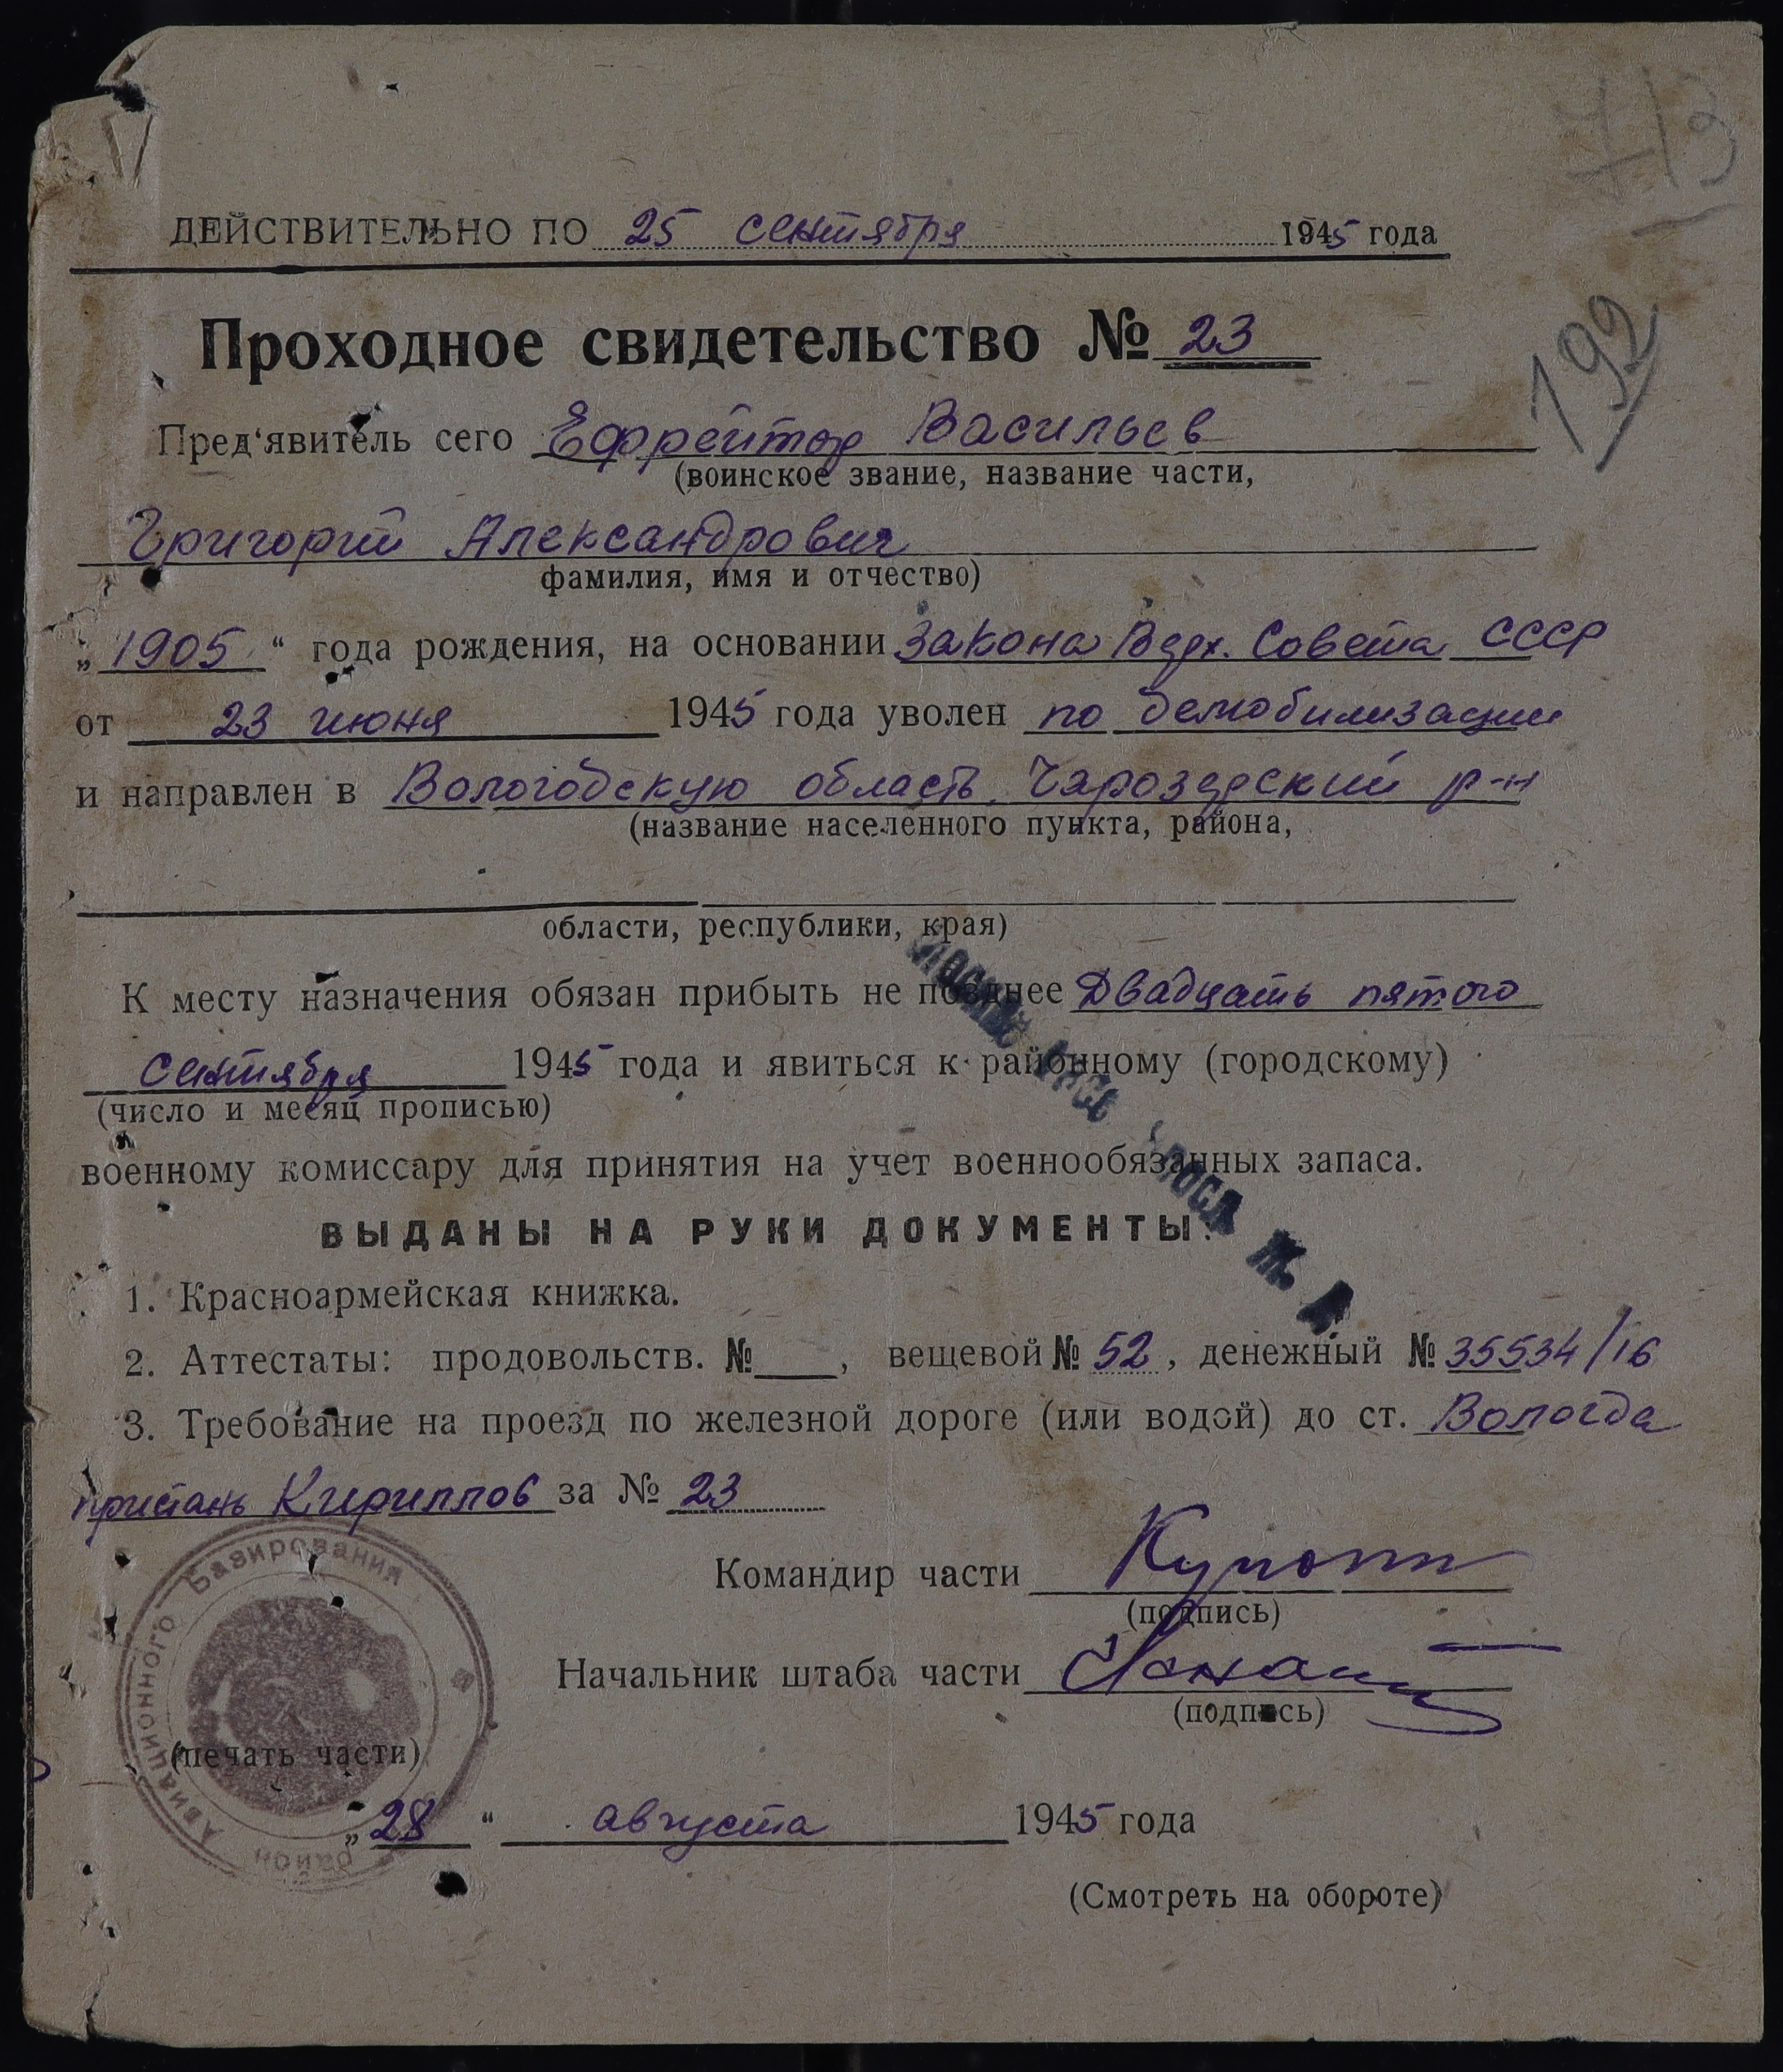 713
ДЕЙСТВИТЕЛЬНО ПО 25 сентября 1945 года
192
Проходное свидетельство № 23
Пред'явитель сего Ефрейтор Васильев
(воинское звание, название части,
Григорий Александрович
фамилия, имя и отчество)
„1905“ года рождения, на основании Закона Верх. Совета СССР
от 23 июня 1945 года уволен по демобилизации
и направлен в Вологодскую область, Чарозерский р-н
(название населенного пункта, района,
области, республики, края)
К месту назначения обязан прибыть не позднее Двадцать пятого
сентября 1945 года и явиться к районному (городскому)
(число и месяц прописью)
военному комиссару для принятия на учет военнообязанных запаса.
ВЫДАНЫ НА РУКИ ДОКУМЕНТЫ:
1. Красноармейская книжка.
2. Аттестаты: продовольств. №, вещевой № 52, денежный № 35534/16
3. Требование на проезд по железной дороге (или водой) до ст. Вологда
пристань Кириллов за № 23
Командир части
(подпись)
Начальник штаба части
(подпись)
Авиационного Базирования
район
(печать части)
„28“ августа 1945 года
(Смотреть на обороте)